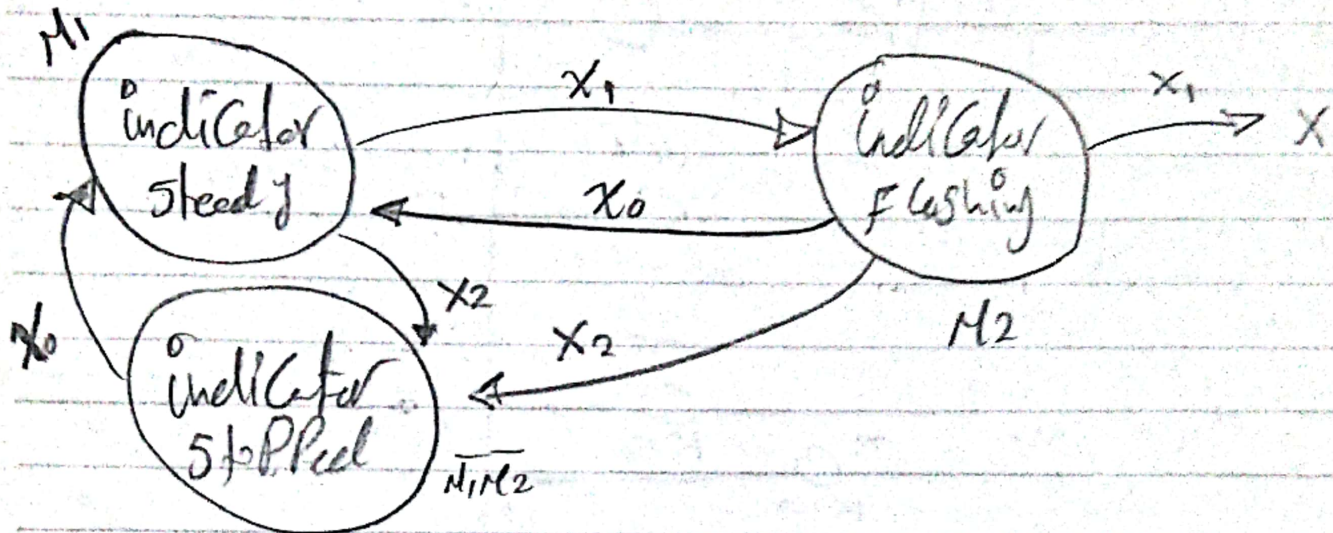 M1
indicator
steady
X1
X0
indicator
Flashing
M2
X1
X
X2
X2
X0
indicator
stopped
M̅1̅M̅2̅